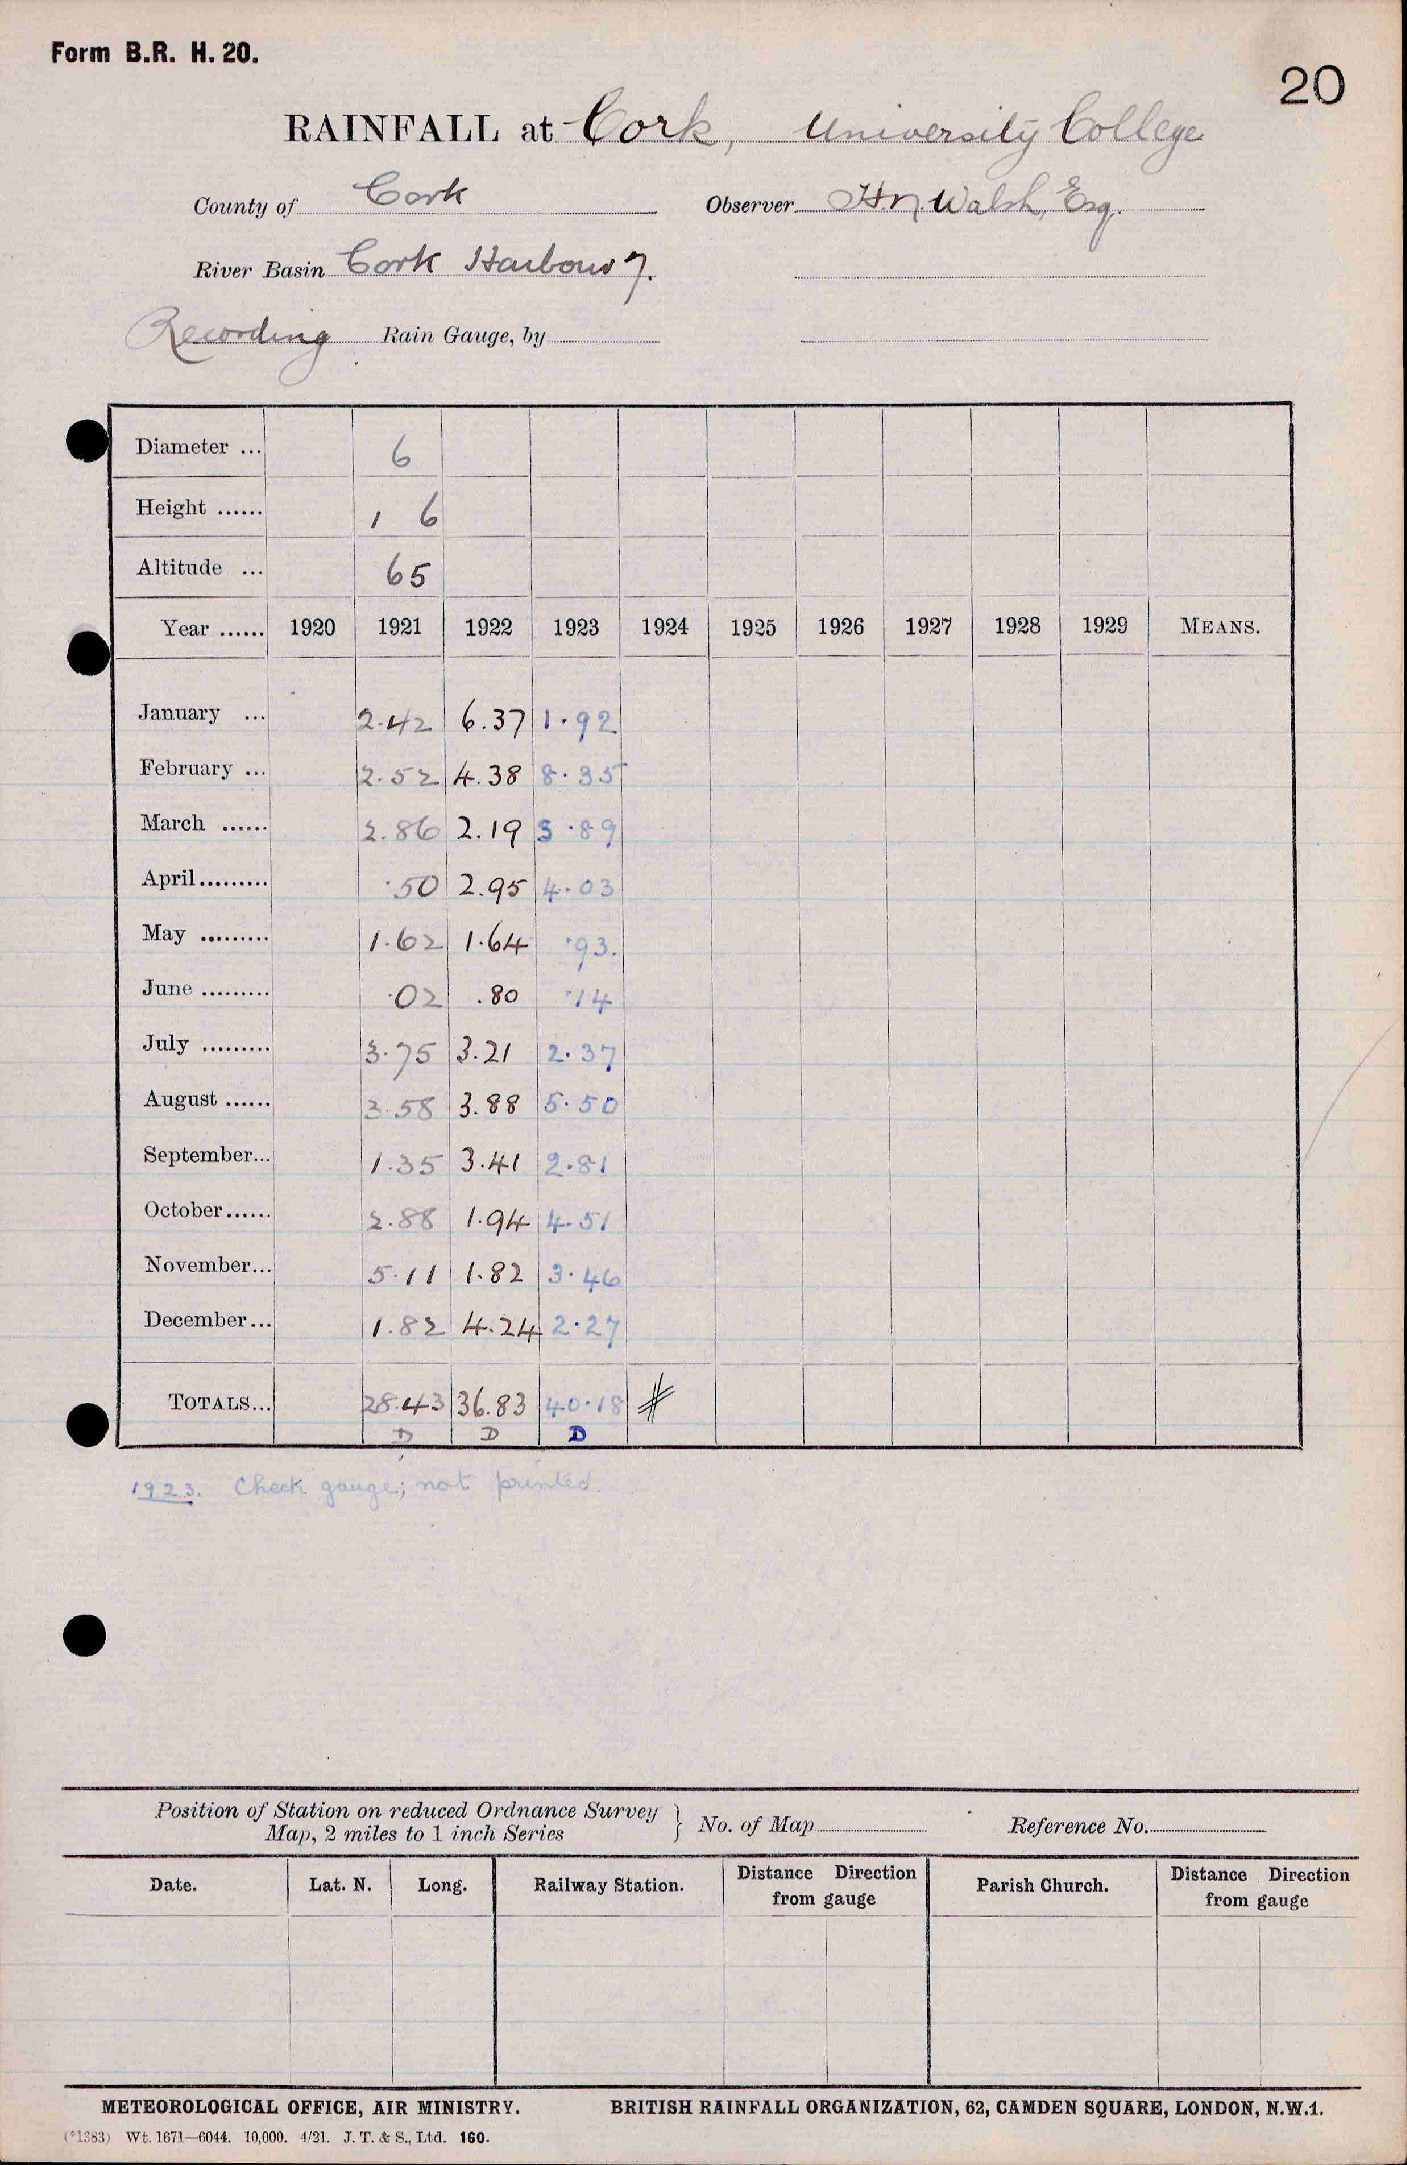 Form B.R. H. 20.
20
RAINFALL at Cork, University College
County of Cork Observer H.N. Walsh, Esq.
River Basin Cork Harbour 7.
Recording Rain Gauge, by
Diameter ... 6
Height ...... 1 6
Altitude ... 65
Year ...... 1920 1921 1922 1923 1924 1925 1926 1927 1928 1929 MEANS.
January ... 2.42 6.37 1.92
February ... 2.52 4.38 8.35
March ...... 2.86 2.19 3.89
April ......... .50 2.95 4.03
May ......... 1.62 1.64 .93.
June ......... .02 .80 .14
July ......... 3.75 3.21 2.37
August ...... 3.58 3.88 5.50
September... 1.35 3.41 2.81
October...... 2.88 1.94 4.51
November... 5.11 1.82 3.46
December... 1.82 4.24 2.27
TOTALS... 28.43 36.83 40.18 #
D D D
1923. Check gauge; not printed.
Position of Station on reduced Ordnance Survey
Map, 2 miles to 1 inch Series } No. of Map Reference No.
Date. Lat. N. Long. Railway Station. Distance Direction from gauge Parish Church. Distance Direction from gauge
METEOROLOGICAL OFFICE, AIR MINISTRY. BRITISH RAINFALL ORGANIZATION, 62, CAMDEN SQUARE, LONDON, N.W.1.
(*1383) Wt. 1671—6044. 10,000. 4/21. J. T. & S., Ltd. 160.